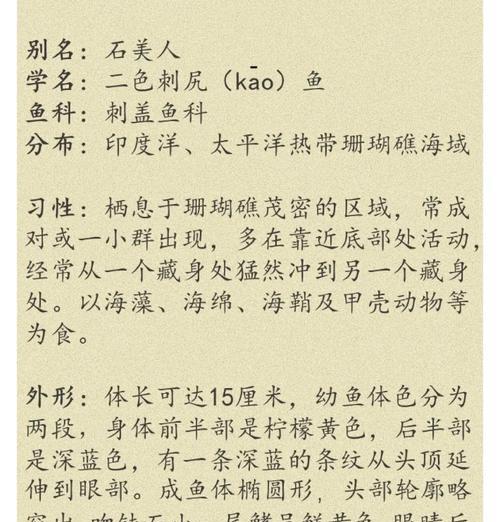 别名：石美人
学名：二色刺尻（kāo）鱼
鱼科：刺盖鱼科
分布：印度洋、太平洋热带珊瑚礁海域
习性：栖息于珊瑚礁茂密的区域，常成
对或一小群出现，多在靠近底部处活动，
经常从一个藏身处猛然冲到另一个藏身
处。以海藻、海绵、海鞘及甲壳动物等
为食。
外形：体长可达15厘米，幼鱼体色分为
两段，身体前半部是柠檬黄色，后半部
是深蓝色，有一条深蓝的条纹从头顶延
伸到眼部。成鱼体椭圆形，头部轮廓略